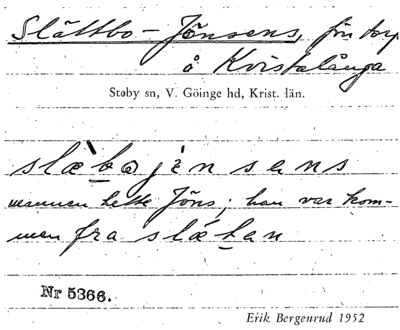 Slättbo-Jönsens, förr torp
å Kvistalånga
Stoby sn, V. Göinge hd, Krist. län.
slæboj sens
mannen hette Jöns; han var kom-
men fra slætan
Nr 5366.
Erik Bergenrud 1952